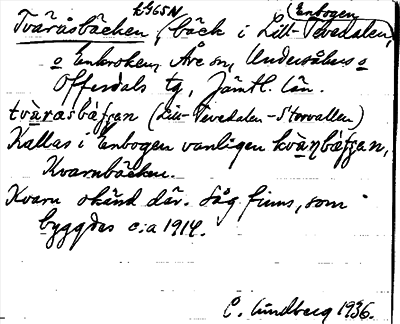 kG65N (Enbogen
Tväråsbäcken, (bäck i Lill-Tevedalen,
o Enkroken, Åre sn, Undersåkers o
Offerdals tg, Jämtl. län.
tvärasbäɟɟan (Lill-Tevedalen-Storvallen)
Kallas i Enbogen vanligen kväɳbäɟɟan,
Kvarnbäcken.
Kvarn okänd där. Såg finns, som
byggdes c:a 1914.
C. Lundberg 1936.